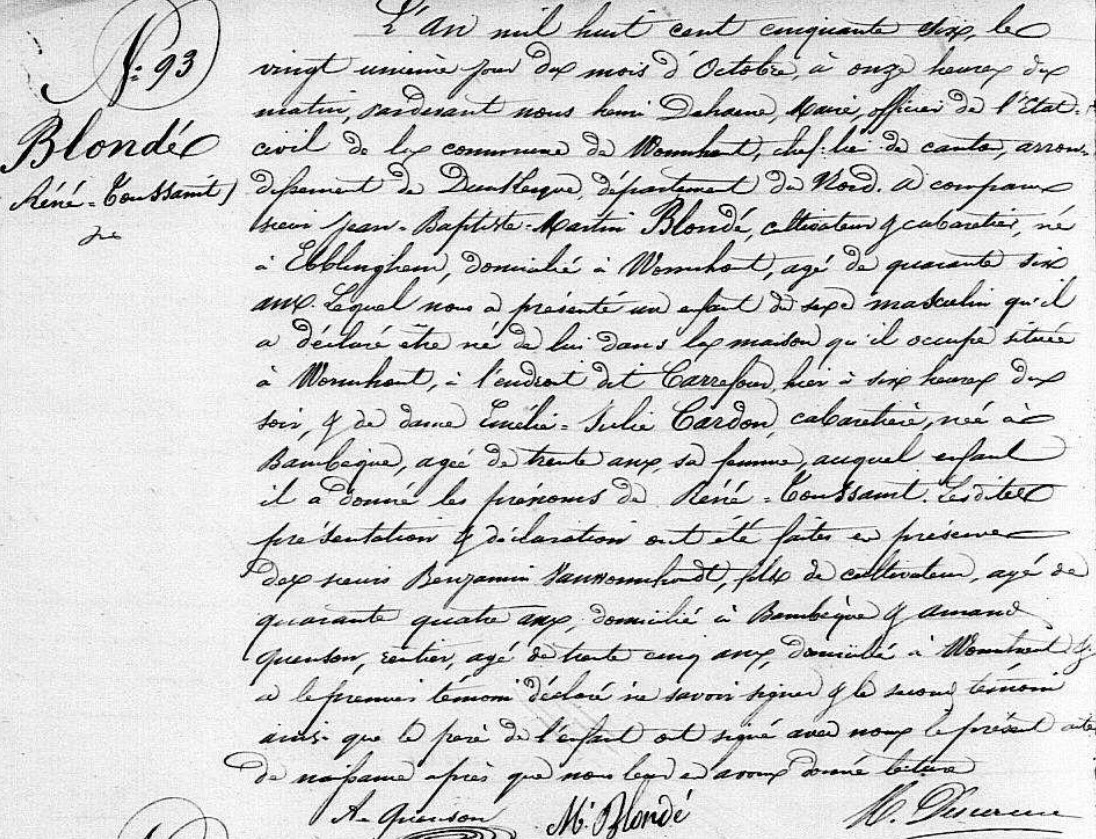 N° 93
Blondé
Réné-Toussaint
L'An mil huit cent cinquante six, le
vingt unième jour du mois d'Octobre, à onze heures du
matin, pardevant nous henri Dehaene, Maire, officier de l'Etat-
civil de la commune de Wormhout, chef-lieu de canton, arron-
dissement de Dunkerque, département du Nord. a comparu
sieur Jean-Baptiste-Martin Blondé, cultivateur & cabaretier, né
à Ebblinghem, domicilié à Wormhout, agé de quarante six
ans. Lequel nous a présenté un enfant de sexe masculin qu'il
a déclaré être né de lui dans la maison qu'il occupe située
à Wormhout, à l'endroit dit Carrefour, hier à six heures du
soir, & de dame Emélie-Julie Cardon, cabaretière, née à
Bambèque, agée de trente ans, sa femme, auquel enfant
il a donné les prénoms de Réné-Toussaint. Lesdites
présentation & déclaration ont été faites en présence
des sieurs Benjamin Vanwormhoudt, fils de cultivateur, agé de
quarante quatre ans, domicilié à Bambèque & Amand
Quenson, rentier, agé de trente cinq ans, domicilié à Wormhout &
a le premier témoin déclaré ne savoir signer & le second témoin
ainsi que le père de l'enfant ont signé avec nous le présent acte
de naissance après que nous leur en avons donné lecture
A. Quenson M. Blondé